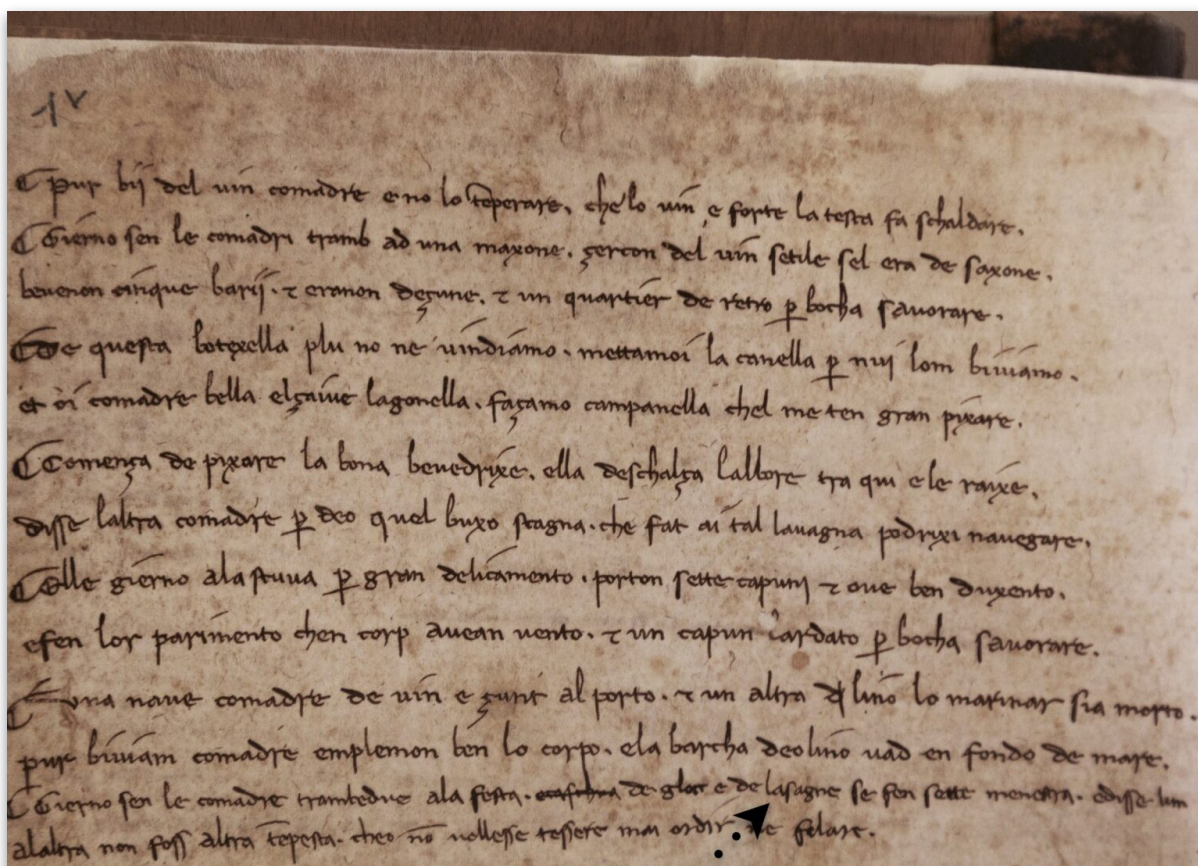 1v
Pur bij del vin comadre e no lo tēperare. che lo vin e forte la testa fa schaldare.
Gierno sen le comadri tramb ad una maxone. çercon del vin setile sel era de saxone.
bevenon cinque barij. ⁊ eranon deçune. ⁊ un quartier de retro ꝑ bocha savorare.
De questa botexella plu no ne vindiamo. mettamoi la canella ꝑ nui lom biviamo.
et oi comadre bella elçaive lagonella. façamo campanella chel me ten gran pixare.
Comença de pixare la bona bevedrixe. ella deschalça lalbore tra qui e le raixe.
disse laltra comadre ꝑ deo quel buxo stagna. che fat ai tal lavagna podrixi navegare.
Elle gierno ala stuva ꝑ gran delicamento. porton sette capunj ⁊ ove ben duxento.
e fen lor parimento chen corp avean vento. ⁊ un capun lardato ꝑ bocha savorare.
E una nave comadre de vin e çunt al porto. ⁊ un altra d lino lo marinar sia morto.
pur biviam comadre emplemon ben lo corpo. e la barcha deo lino vad en fondo de mare.
Gierno sen le comadre trambedue ala festa. de gloc e de lasagne se fen sette menestra. e disse lun
alaltra non foss altra tēpesta. cheo nō vollesse tessere mai ordir ne filare.